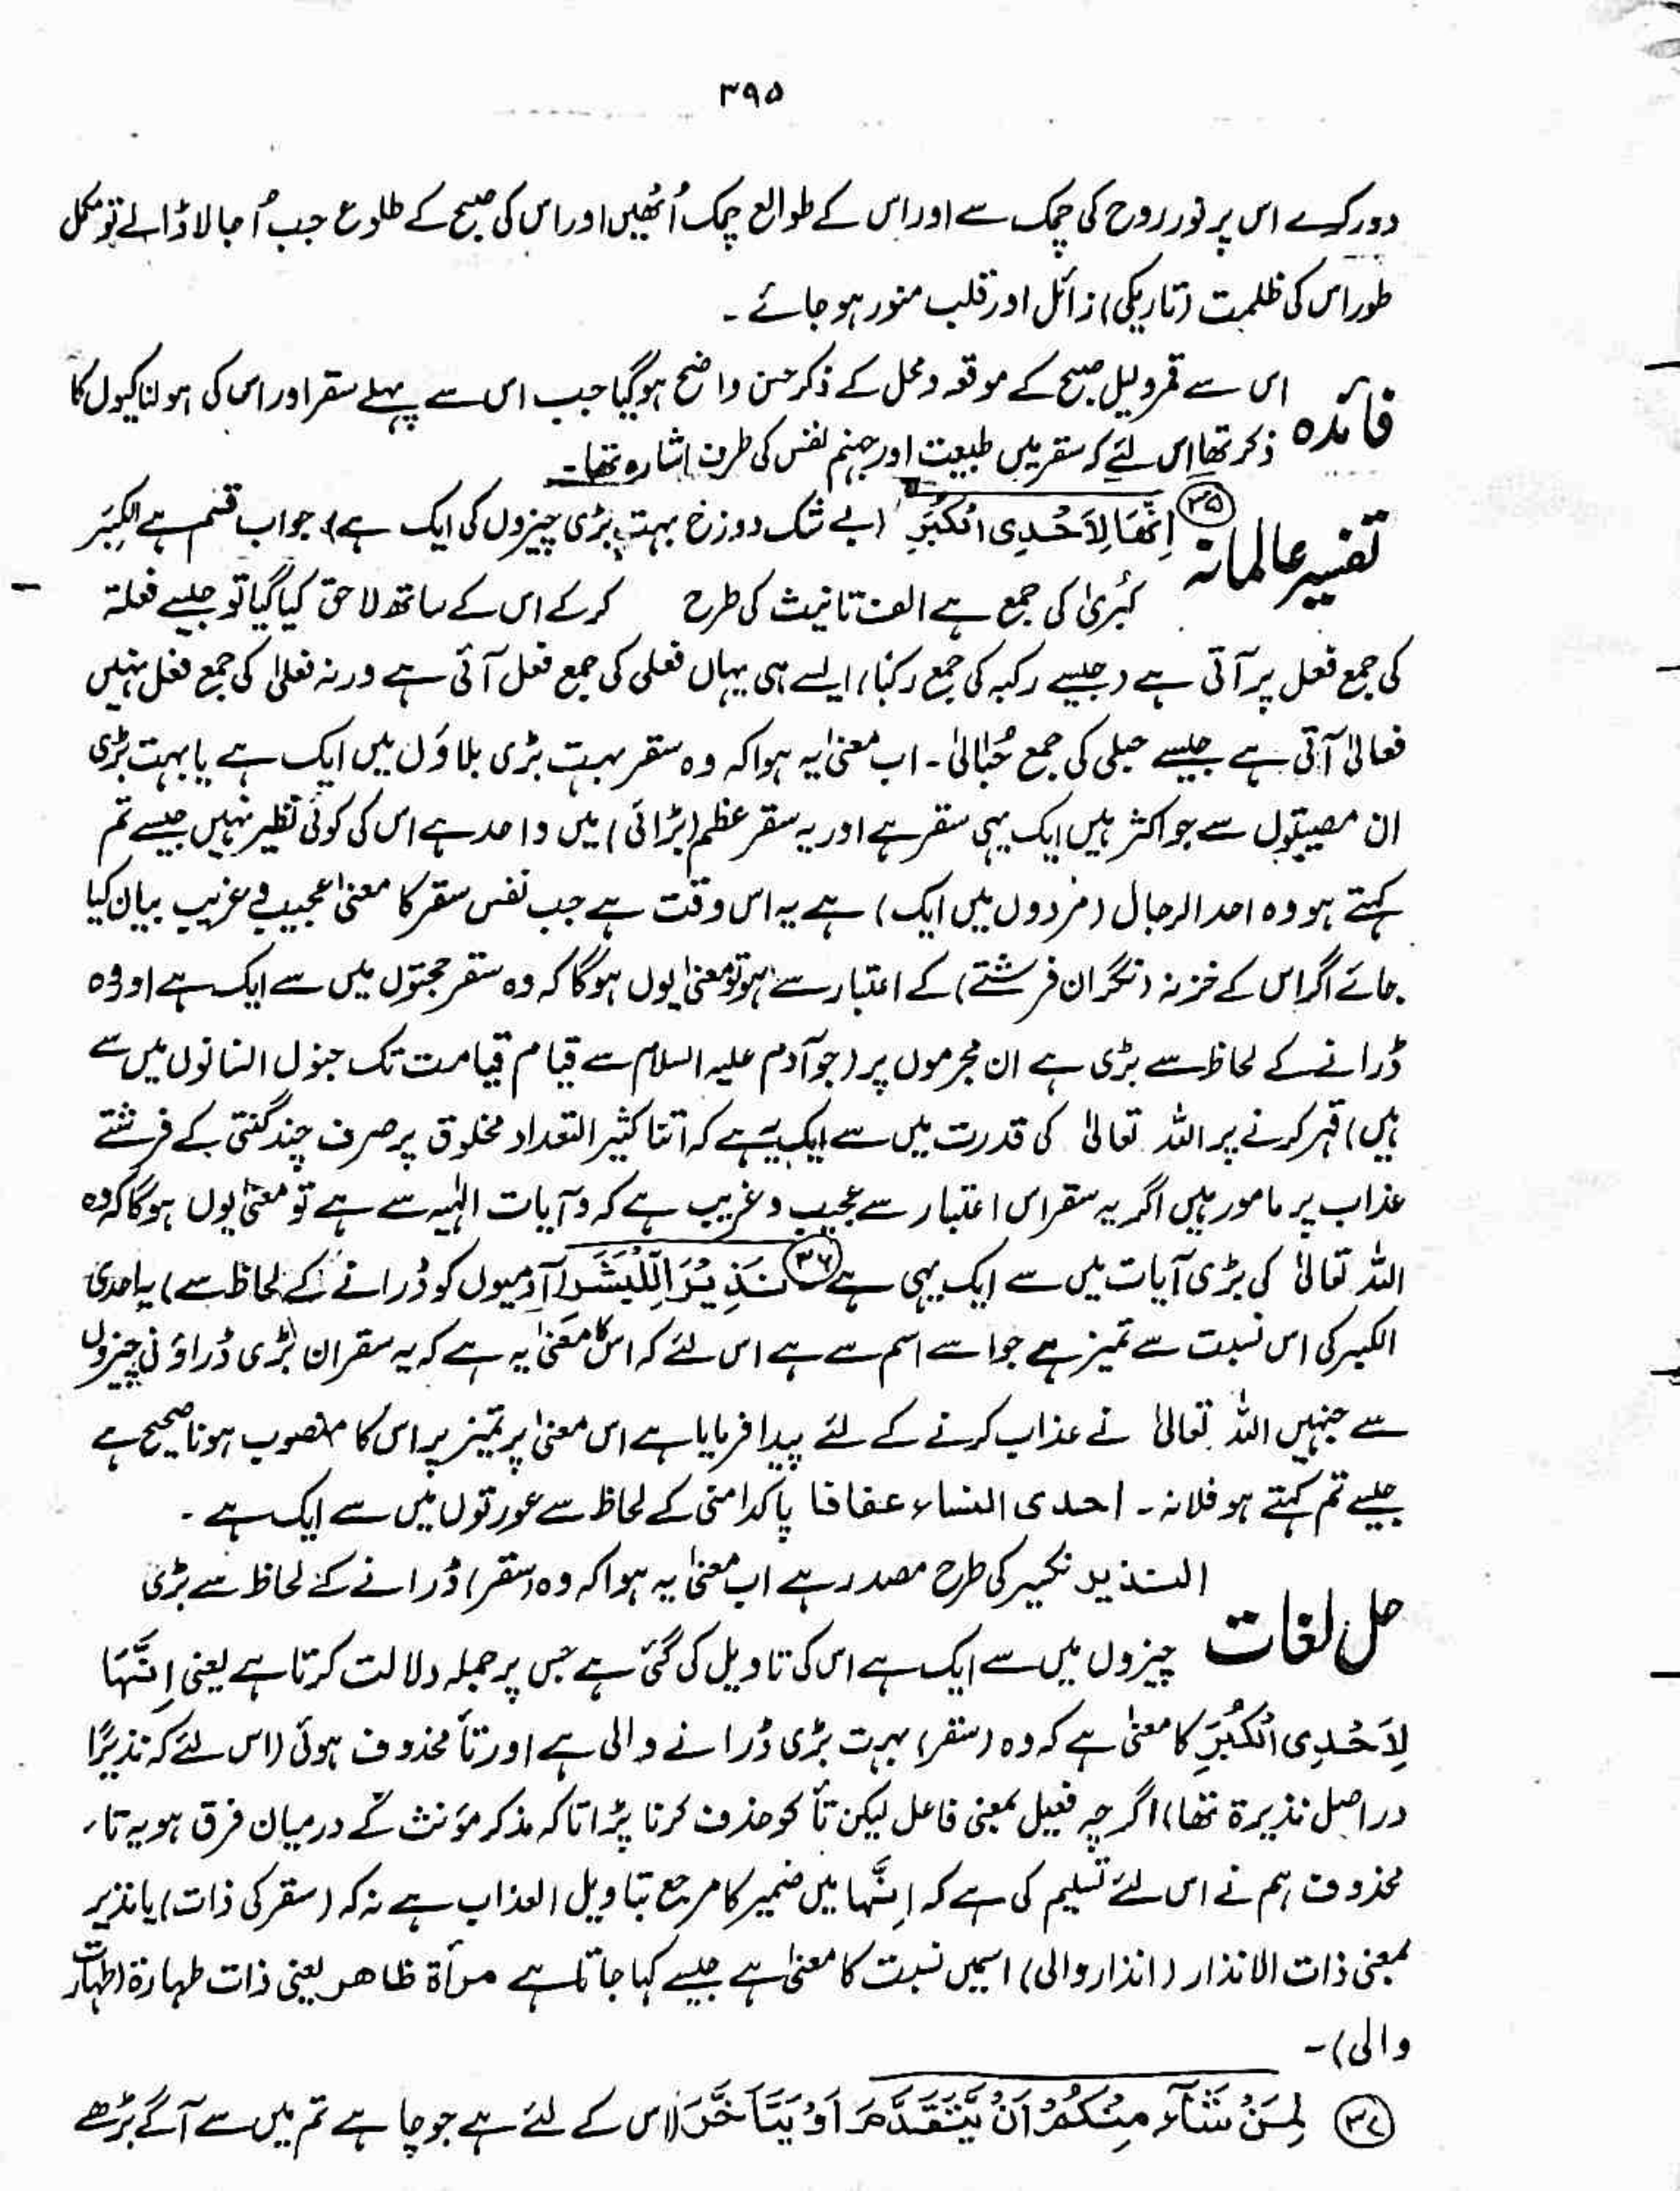 ۳۹۵
دور کرے اس پر نور روح کی چمک سے اور اس کے طوالع چمک اُٹھیں اور اس کی صبح کے طلوع جب اُجالا ڈالے تو مکمل
طور اس کی ظلمت (تاریکی) زائل اور قلب منور ہو جائے ۔
فائدہ اس سے قمر و لیل صبح کے موقعہ و محل کے ذکر حسن واضح ہوگیا جب اس سے پہلے سقر اور اس کی ہولناکیوں کا
ذکر تھا اس لئے کہ سقر میں طبیعت اور جہنم نفس کی طرف اشارہ تھا ۔
تفسیر عالمانہ ۳۵ اِنَّهَا لَاِحْدَی الْکُبَرِ (بے شک دوزخ بہت بڑی چیزوں کی ایک ہے) جواب قسم ہے الکُبَر
کُبریٰ کی جمع ہے الف تانیث کی طرح کر کے اس کے ساتھ لاحق کیا گیا تو جیسے فعلة
کی جمع فعل پر آتی ہے (جیسے رکبہ کی جمع رکبا) ایسے ہی یہاں فعلی کی جمع فعل آئی ہے ورنہ فعلیٰ کی جمع فعل نہیں
فعالیٰ آتی ہے جیسے حبلی کی جمع حُبالیٰ ۔ اب معنیٰ یہ ہوا کہ وہ سقر بہت بڑی بلاؤں میں ایک ہے یا بہت بڑی
ان مصیبتوں سے جو اکثر ہیں ایک یہی سقر ہے اور یہ سقر عظم (بڑائی) میں واحد ہے اس کی کوئی نظیر نہیں جیسے تم
کہتے ہو وہ احد الرجال (مردوں میں ایک) ہے یہ اس وقت ہے جب نفس سقر کا معنیٰ عجیب و غریب بیان کیا
جائے اگر اس کے خزنہ (نگران فرشتے) کے اعتبار سے ہو تو معنیٰ یوں ہوگا کہ وہ سقر حجتوں میں سے ایک ہے اور وہ
ڈرانے کے لحاظ سے بڑی ہے ان مجرموں پر (جو آدم علیہ السلام سے قیام قیامت تک جنوں انسانوں میں سے
ہیں) قہر کرنے پر اللہ تعالیٰ کی قدرت میں سے ایک یہ ہے کہ اتنا کثیر التعداد مخلوق پر صرف چند گنتی کے فرشتے
عذاب پر مامور ہیں اگر یہ سقر اس اعتبار سے عجیب و غریب ہے کہ وہ آیات الٰہیہ سے ہے تو معنیٰ یوں ہوگا کہ وہ
اللہ تعالیٰ کی بڑی آیات میں سے ایک یہی ہے ۳۶ نَذِیْرًا لِّلْبَشَرِ (آدمیوں کو ڈرانے کے لحاظ سے) یہ احدی
الکبر کی اس نسبت سے تمیز ہے جو اسے اسم سے ہے اس لئے کہ اس کا معنیٰ یہ ہے کہ یہ سقر ان بڑی ڈراؤنی چیزوں
سے جنہیں اللہ تعالیٰ نے عذاب کرنے کے لئے پیدا فرمایا ہے اس معنیٰ پر تمیز پر اس کا منصوب ہونا صحیح ہے
جیسے تم کہتے ہو فلانہ ۔ احدی النساء عفافا پاکدامنی کے لحاظ سے عورتوں میں سے ایک ہے ۔
حل لغات النذیر نکیر کی طرح مصدر ہے اب معنیٰ یہ ہوا کہ وہ (سقر) ڈرانے کے لحاظ سے بڑی
چیزوں میں سے ایک ہے اس کی تاویل کی گئی ہے جس پر جملہ دلالت کرتا ہے یعنی اِنَّهَا
لَاِحْدَی الْکُبَرِ کا معنیٰ ہے کہ وہ (سقر) بہت بڑی ڈرانے والی ہے اور تأ محذوف ہوئی (اس لئے کہ نذیرًا
دراصل نذیرۃ تھا) اگرچہ فعیل بمعنی فاعل لیکن تأ کو حذف کرنا پڑا تاکہ مذکر مؤنث کے درمیان فرق ہو یہ تاء
محذوف ہم نے اس لئے تسلیم کی ہے کہ اِنَّها میں ضمیر کا مرجع بتاویل العذاب ہے نہ کہ (سقر کی ذات) یا نذیر
بمعنی ذات الانذار (انذار والی) اسمیں نسبت کا معنیٰ ہے جیسے کہا جاتا ہے مرأة طاهر یعنی ذات طہارة (طہارت
والی) ۔
۳۷ لِمَنْ شَآءَ مِنْکُمْ اَنْ یَّتَقَدَّمَ اَوْ یَتَاَخَّرَ (اس کے لئے ہے جو چاہے تم میں سے آگے بڑھے